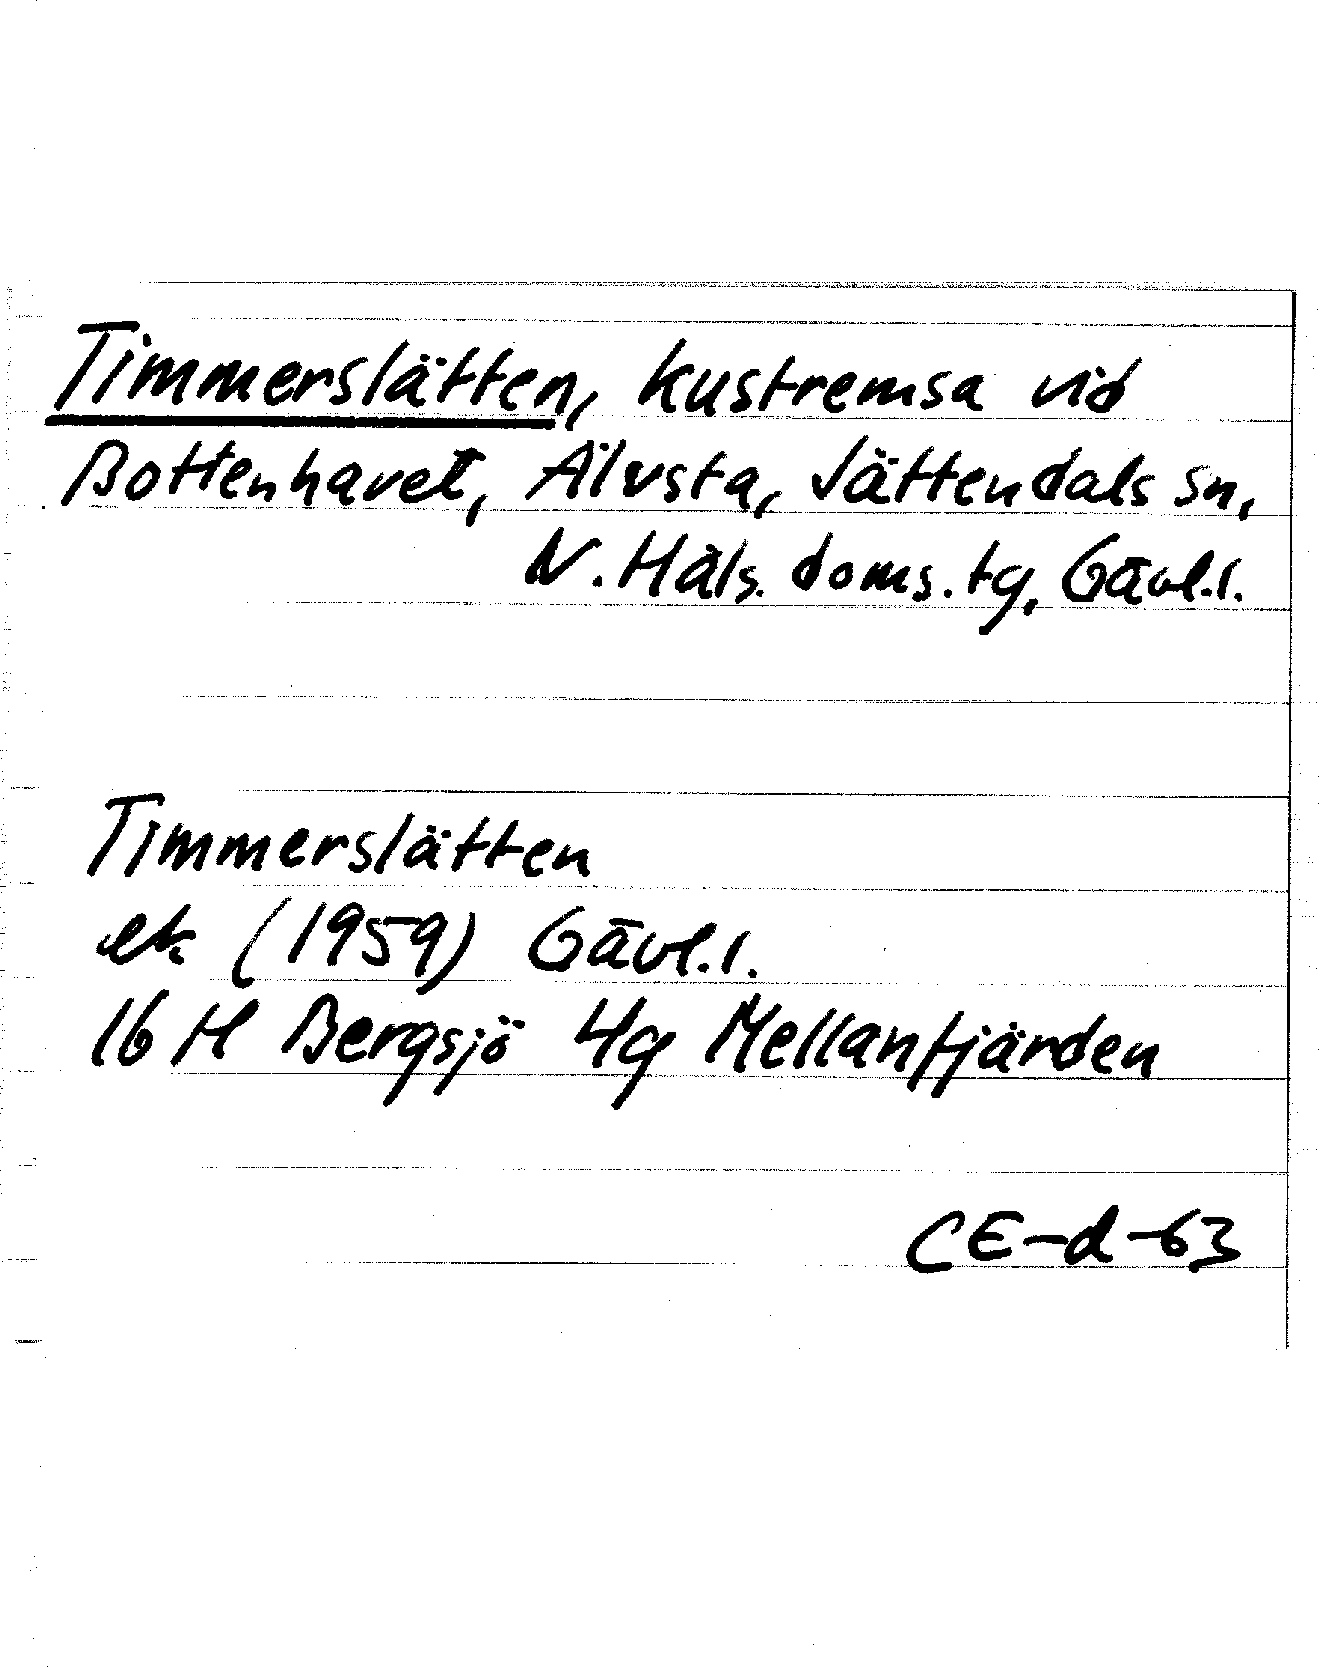 Timmerslätten, kustremsa vid
Bottenhavet, Älvsta, Jättendals sn,
N. Häls. doms. tg, Gävl.l.
Timmerslätten
ek (1959) Gävl.l.
16 H Bergsjö 4g Mellanfjärden
CE-d-63